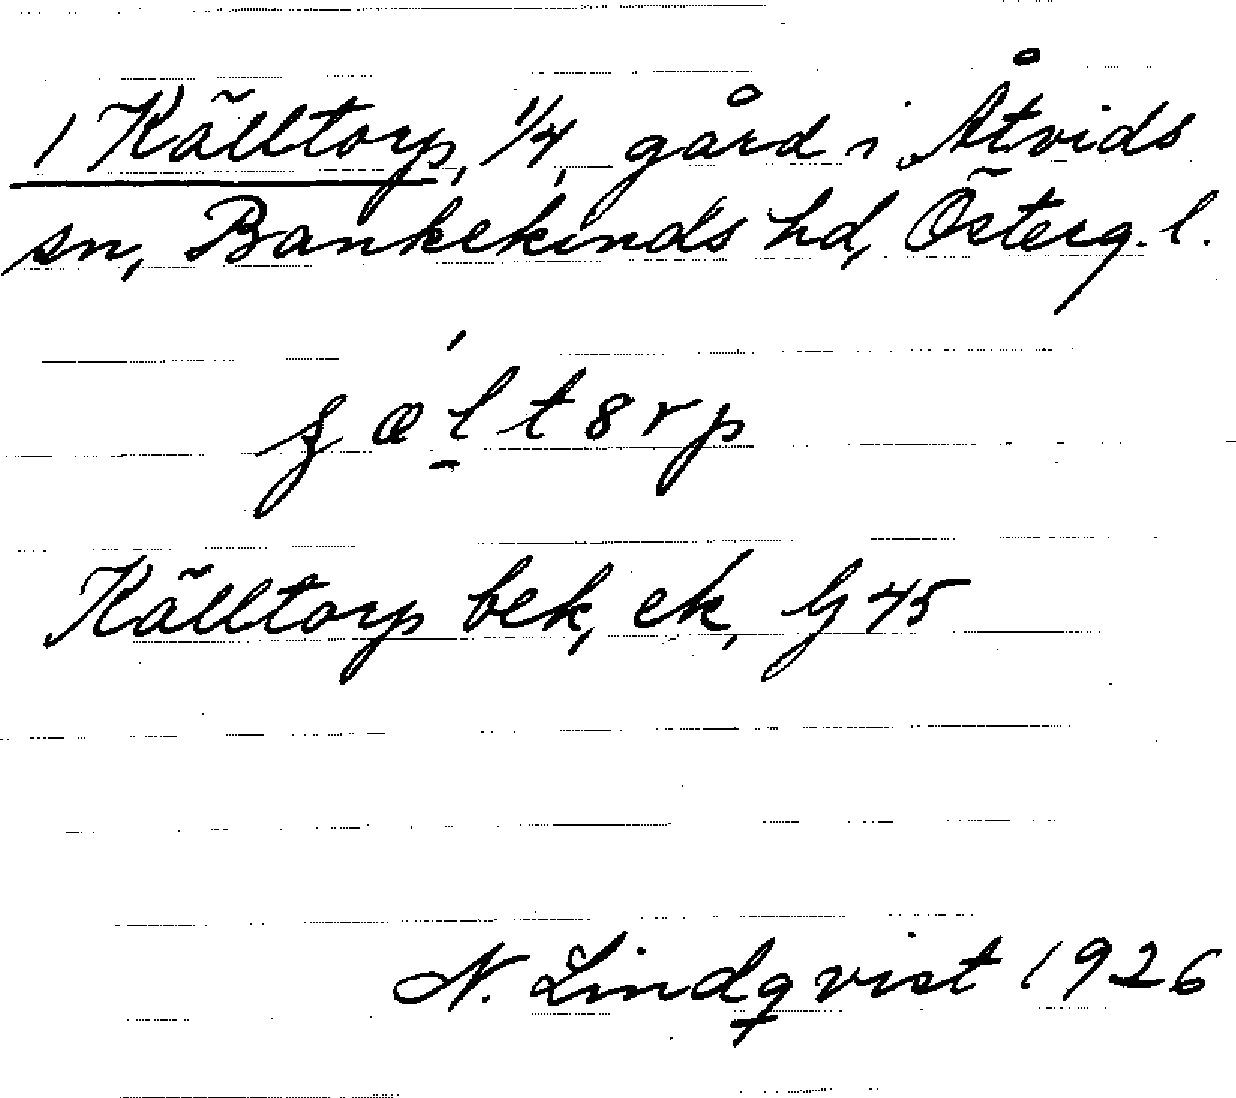 1 Källtorp, 1/4, gård i Åtvids
sn, Bankekinds hd, Österg. l.
Källtorp bek, ek, G 45
N. Lindqvist 1926